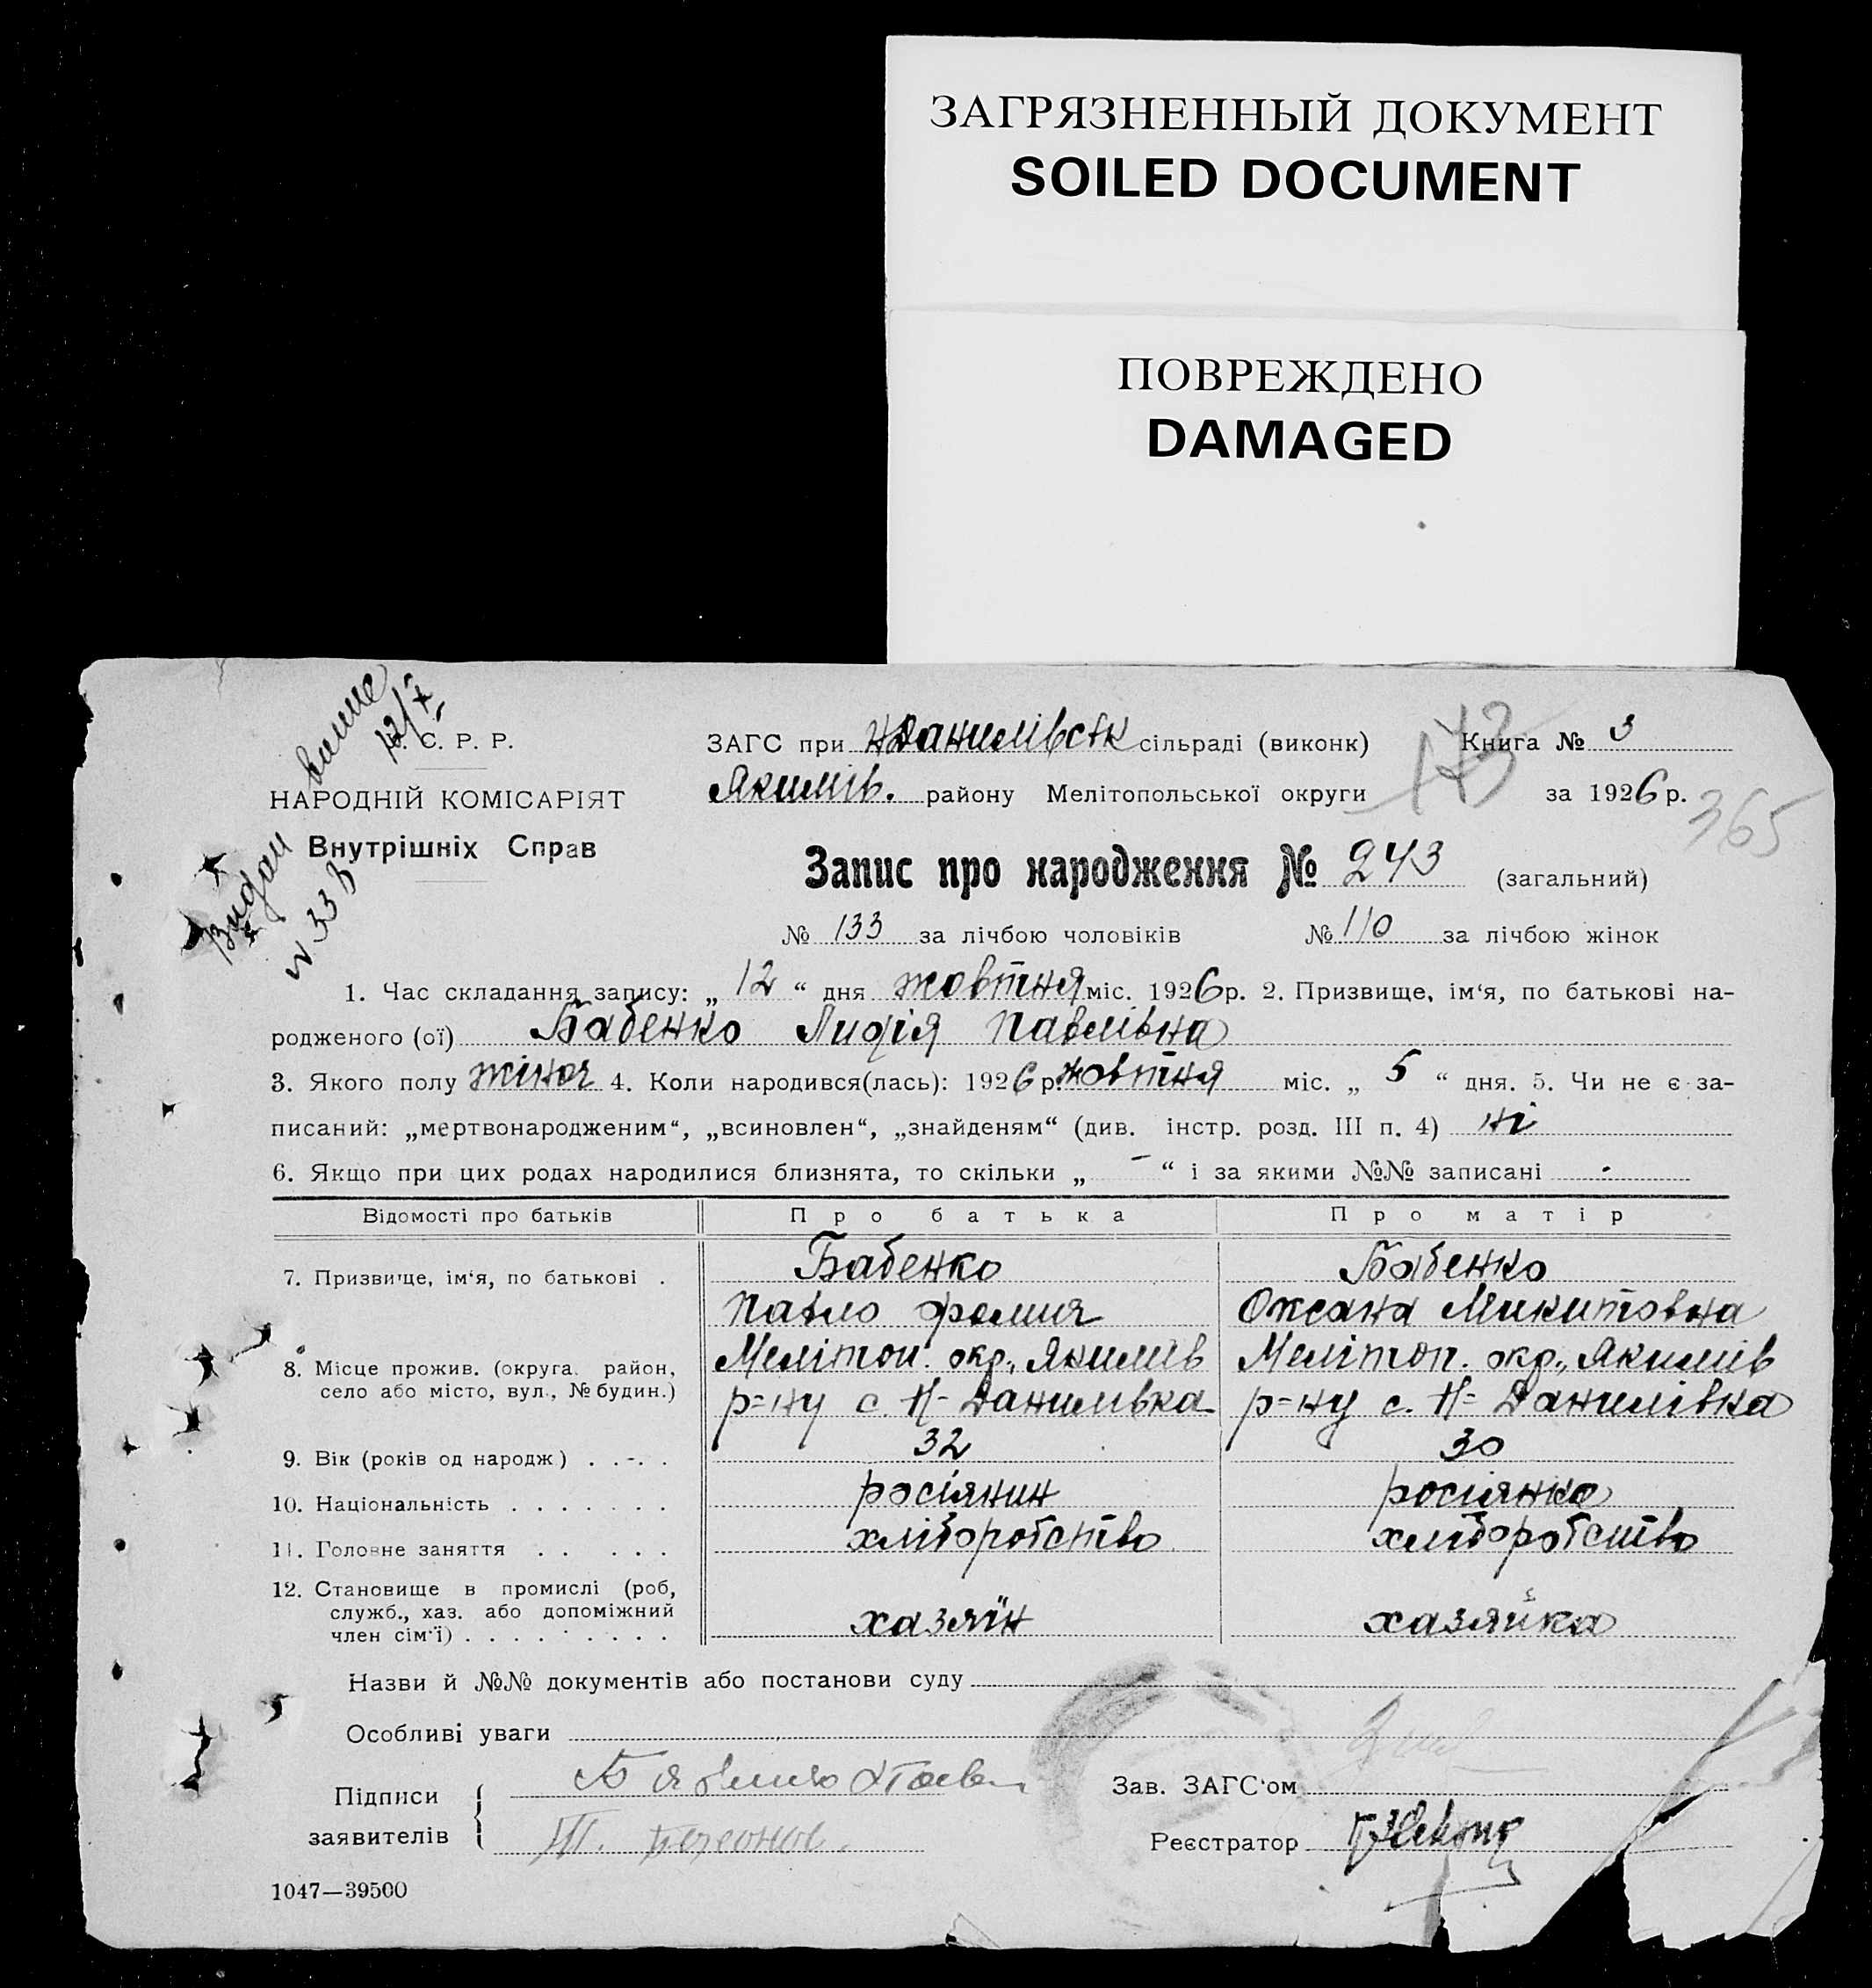 ЗАГРЯЗНЕННЫЙ ДОКУМЕНТ
SOILED DOCUMENT
ПОВРЕЖДЕНО
DAMAGED
12/X
С. Р. Р.
НАРОДНІЙ КОМІСАРІЯТ
Внутрішніх Справ
Видан
ЗАГС при Н Данилівськ сільраді (виконк) Книга № 3
Якимів. району Мелітопольської округи 173 за 1926 р. 365
Запис про народження № 243 (загальний)
№ 133 за лічбою чоловіків № 110 за лічбою жінок
1. Час складання запису: „ 12 “ дня жовтня міс. 1926 р. 2. Призвище, ім‘я, по батькові на-
родженого (ої) Бабенко Лидія Павлівна
3. Якого полу жіноч 4. Коли народився(лась): 1926 р. жовтня міс. „ 5 “ дня. 5. Чи не є за-
писаний: „мертвонародженим“, „всиновлен“, „знайденям“ (див. інстр. розд. III п. 4) ні
6. Якщо при цих родах народилися близнята, то скільки „ - “ і за якими №№ записані
Відомості про батьків Про батька Про матір
7. Призвище, ім‘я, по батькові . Бабенко Бабенко
Павло Фомич Оксана Микитовна
8. Місце прожив. (округа. район, Мелітоп. окр., Якимів Мелітоп. окр., Якимів
село або місто, вул., № будин.) р=ну с. Н- Данилівка р=ну с. Н= Данилівка
9. Вік (років од народж.) . . -. . 32 30
10. Національність . . . . . . . росіянин росіянка
11. Головне заняття . . . . . хліборобство хліборобство
12. Становище в промислі (роб,
служб., хаз. або допоміжний
член сім‘ї) . . . . . . . . . хазяїн хазяйка
Назви й №№ документів або постанови суду
Особливі уваги
Підписи
заявителів
Зав. ЗАГС‘ом
Реєстратор
1047—39500